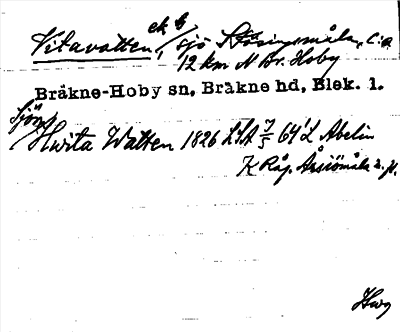 Vitavatten, ek b
sjö Stösingsmåla, c:a
12 km N Br. Hoby
Bräkne-Hoby sn, Bräkne hd, Blek. l.
Sjön
Hwita Watten 1826 64 L Abelin
K Råg. Årsiömåla
Hwg